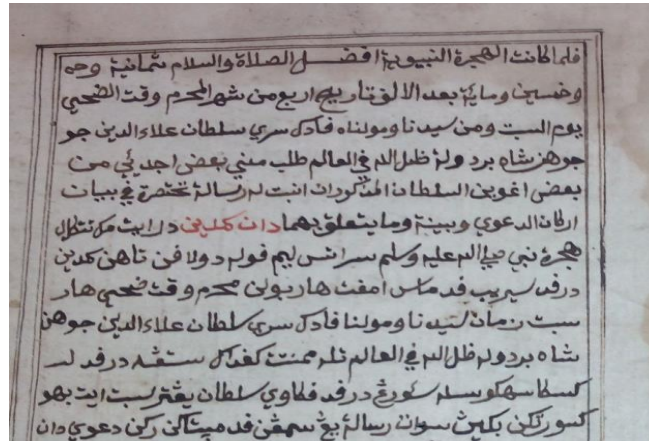 فلما كانت الهجرة النبيوية افضل الصلاة والسلام ثمانية
وخمسين وماية بعد الالف تاريخ اربع من شهر المحرم وقت الضحى
يوم السبت ومن سيدنا ومولناه فادك سري سلطان علاء الدين جو
جوهن شاه بردولة ظل الله في العالم طلب مني بعض اجدئي من
بعض اغوين السلطان المذكور ان انبت له رسالة مختصرة في بيان
اركان الدعوي وبينة وما يتعلق بهما دان كمدين در ايت مك تتكال
هجرة نبي صلي الله عليه وسلم سراتس ليم فوله دولافن تاهن كمدين
درفد سريب فد ماس امفت هاربولن محرم وقت ضحى هار
سبت زمان سيدنا ومولنا فادك سري سلطان علاء الدين جوهن
شاه بردوله ظل الله في العالم تله ممنت كفداك ستڠه درفد
سئورڠ درفد فكاوي سلطان يڠ ترسبت ايت بهو
كسورتكن بكيڽ سوات رسالة يڠ سمڤن فد مپتاكن ركن دعوي دان